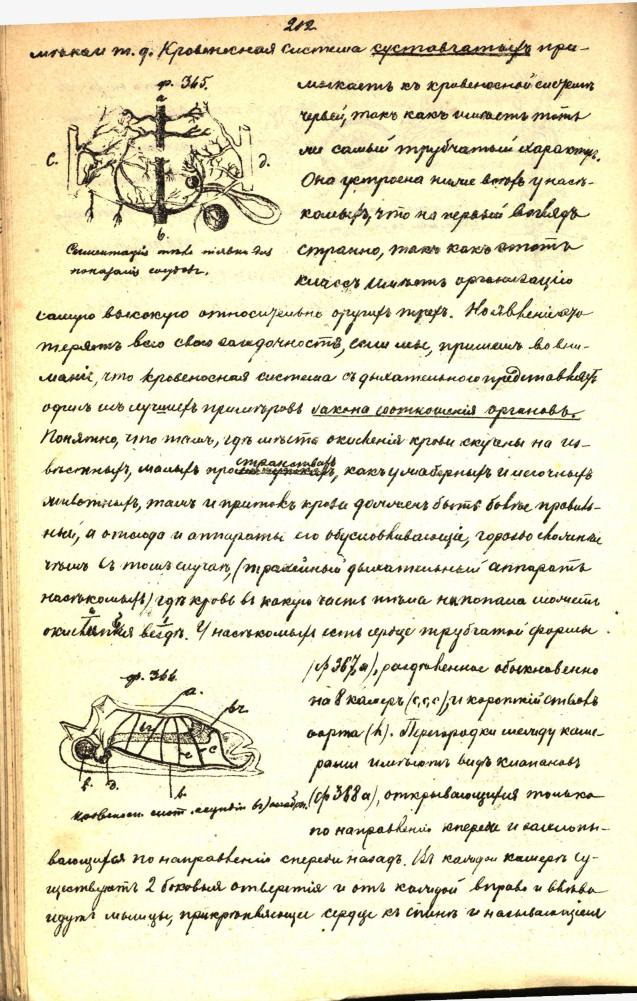 212
мъкам т. д. Кровеносная система суставчатыхъ при-
ф. 365.
a
c.
д.
b.
Сегментація тѣла піявки для
показанія сосудов.
мыкаетъ къ кровеносной систем
червей, такъ какъ имѣетъ тотъ
же самый трубчатый характръ.
Она устроена ниже всѣхъ у насѣ-
комыхъ, что на первый взглядъ
странно, такъ какъ этотъ
классъ имѣетъ организацію
самую высокую относительно другихъ трехъ. Но явленіе это
теряетъ всю свою загадочность, если мы, примемъ во вни-
маніе, что кровеносная система съ дыхательною представляетъ
одинъ изъ лучшихъ примѣровъ закона соотношенія органовъ.
Понятно, что тамъ, гдѣ мѣста окисленія крови скучены на из-
вѣстныхъ, малыхъ пространствахъ, какъ у жаберныхъ и легочныхъ
животныхъ, тамъ и притокъ крови долженъ быть болѣе правиль-
ный, а отсюда и аппараты его обусловливающіе, гораздо сложнѣе
чѣмъ въ томъ случаѣ, (трахейный дыхательный аппаратъ
насѣкомыхъ) гдѣ кровь въ какую часть тѣла ни попала можетъ
вездѣ. У насѣкомыхъ есть сердце трубчатой формы
ф. 366.
a.
br
br
c
c
f.
д.
b.
кровеносн. сист.
(ф 367,а), раздѣленное обыкновенно
на 8 камеръ (с,с,с), и короткій стволъ
аорта (h). Перегородки между каме-
рами имѣютъ видъ клапановъ
(ф 368 а), открывающихся только
по направленію впередъ и захлопы-
вающихся по направленію спереди назадъ. Въ каждой камерѣ су-
ществуетъ 2 боковыя отверстія и отъ каждой вправо и влѣво
идутъ мышцы, прикрѣпляющіе сердце къ спинѣ и называющіеся